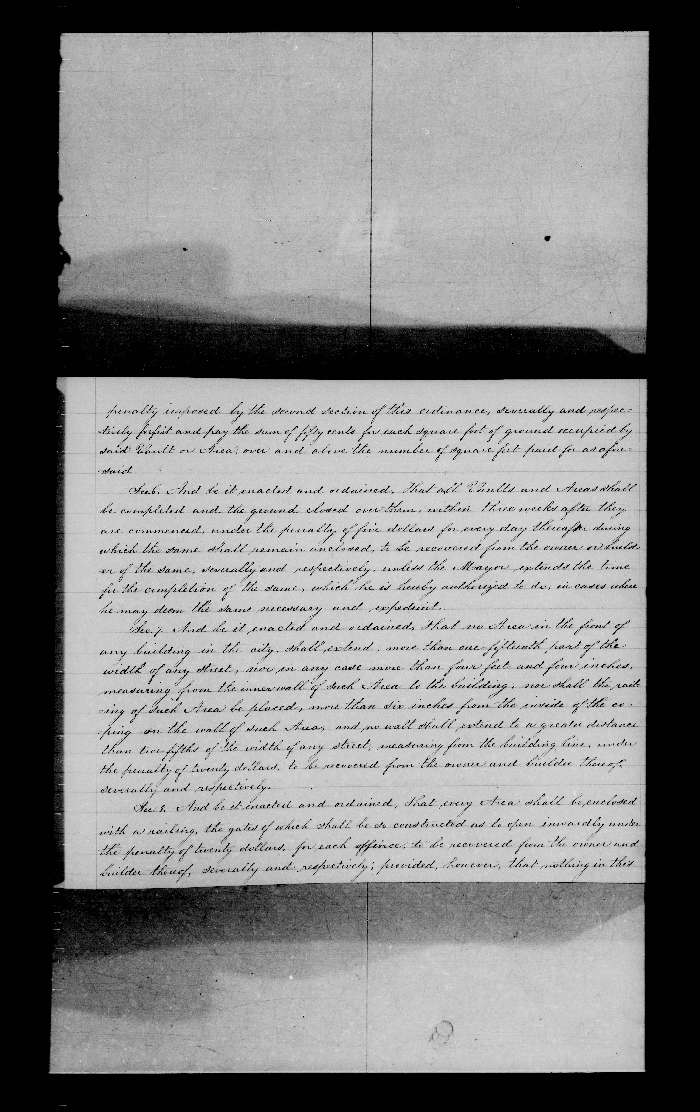 penalty imposed by the second section of this ordinance, severally and respec-
tively forfeit and pay the sum of fifty cents for each square foot of ground occupied by
said Vault or Area, over and above the number of square feet paid for as afore-
said
Sec 6. And be it enacted and ordained, That all Vaults and Areas shall
be completed and the ground closed over them, within three weeks after they
are commenced, under the penalty of five dollars for every day thereafter during
which the same shall remain unclosed, to be recovered from the owner or build-
er of the same, severally and respectively, unless the Mayor extends the time
for the completion of the same, which he is hereby authorized to do, in cases where
he may deem the same necessary and expedient.
Sec. 7. And be it enacted and ordained, That no Area in the front of
any building in the city, shall extend, more than one-fifteenth part of the
width of any street, nor in any case more than four feet and four inches,
measuring from the inner wall of such Area to the building, nor shall the rail-
ing of such Area be placed, more than six inches from the inside of the co-
ping on the wall of such Area, and no wall shall extend to a greater distance
than two-fifths of the width of any street, measuring from the building line, under
the penalty of twenty dollars, to be recovered from the owner and builder thereof,
severally and respectively.
Sec 8. And be it enacted and ordained, That every Area shall be enclosed
with a railing, the gates of which shall be so constructed as to open inwardly under
the penalty of twenty dollars, for each offence, to be recovered from the owner and
builder thereof, severally and respectively; provided, however, that nothing in this